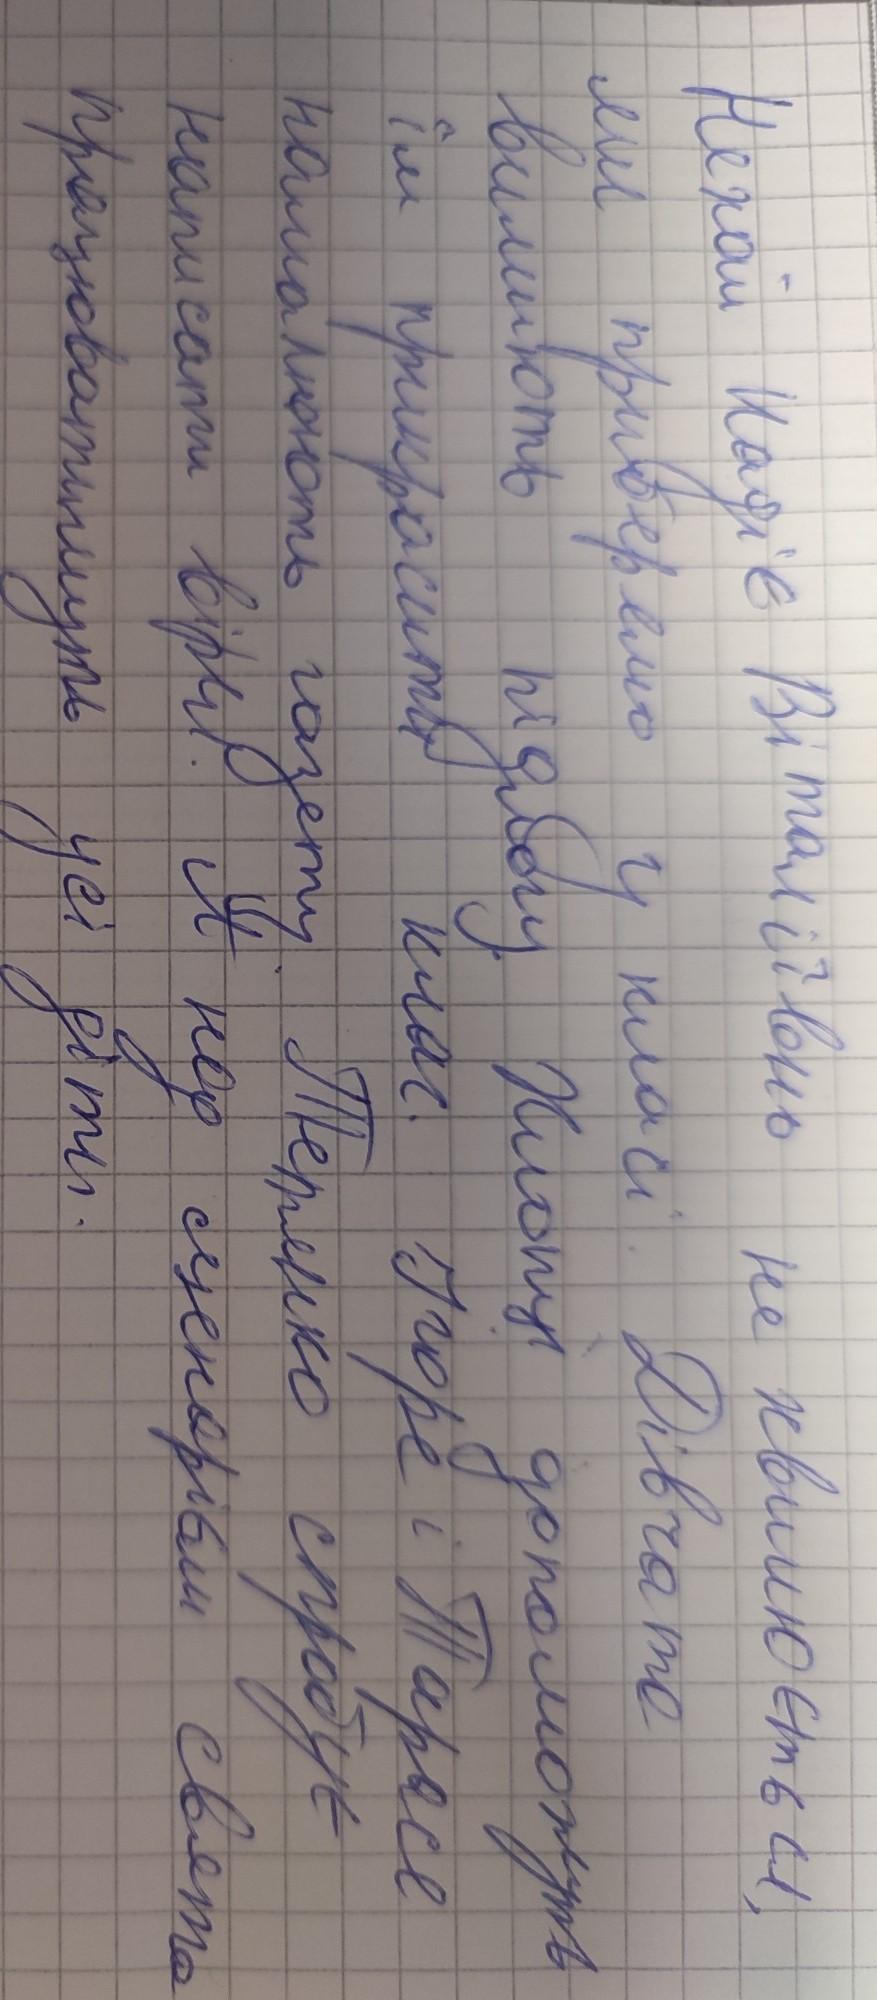 Нехай Надія Віталіївнь не хвилюється,
ми приберемо у класі. Дівчата
вимиють підлогу Хлопці допоможуть
їм прикрасити клас. Ігоре і Тарасе
намалюють газету. Терешко спробує
написати вірш. А над сценарієм свята
працюватимуть усі діти.